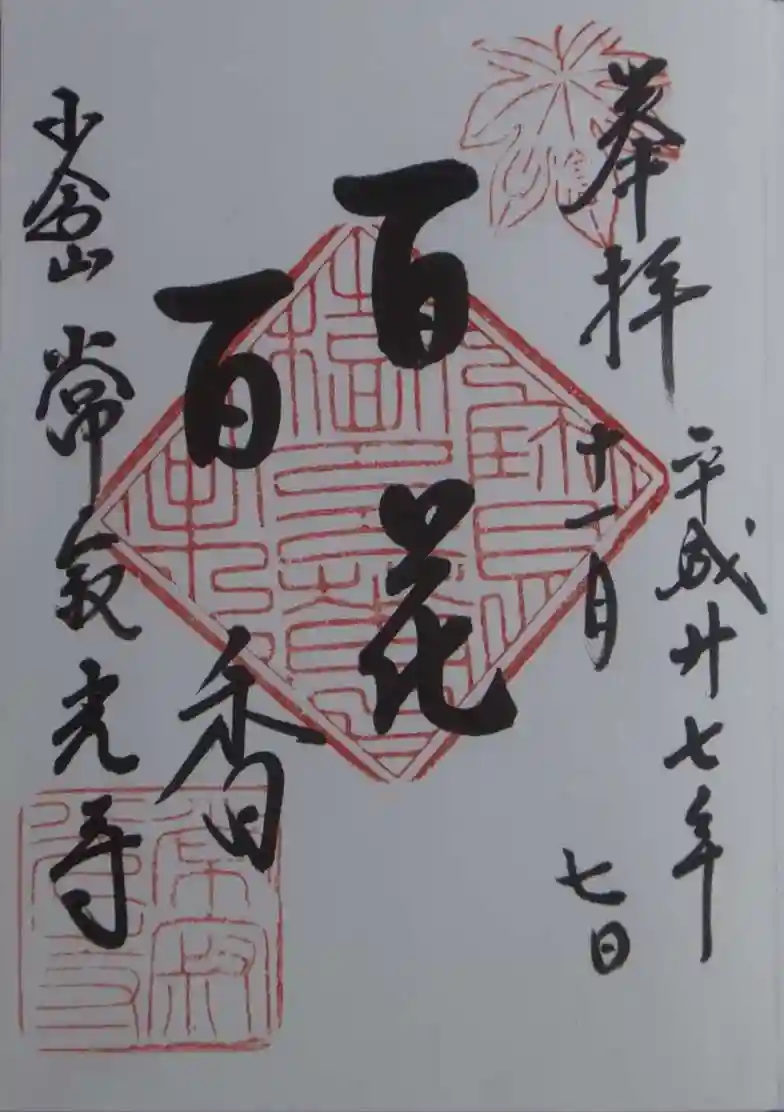 奉拝
平成廿七年
十一月
七日
百花
百香
小倉山 常寂光寺